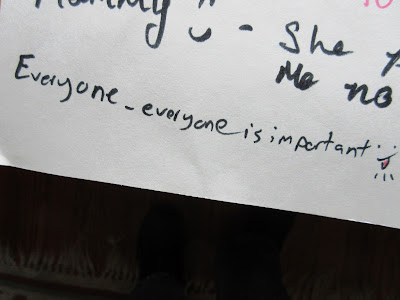 - She
Me no
Everyone - everyone is important